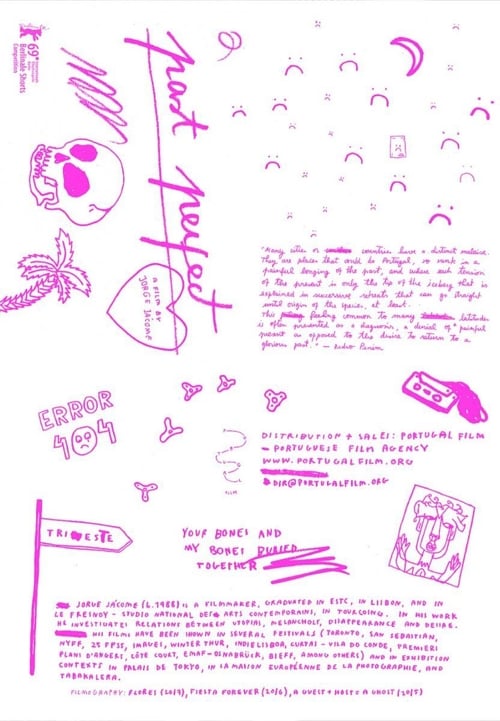 69° Internationale
Filmfestspiele
Berlin
Berlinale Shorts
Competition
past perfect
A FILM BY
JORGE JÁCOME
"Many cities or countries have a distinct malaise.
They are places that could be Portugal, so sunk in a
painful longing of the past, and where each tension
of the present is only the tip of the iceberg that is
explained in successive retreats that can go straight
until origin of the species, at least.
This feeling common to many latitudes
is often presented as a diagnosis, a denial of painful
present as opposed to the desire to return to a
glorious past." — Pedro Penim
ERROR
404
DISTRIBUTION + SALES: PORTUGAL FILM
– PORTUGUESE FILM AGENCY
WWW.PORTUGALFILM.ORG
DIR@PORTUGALFILM.ORG
TRIESTE
YOUR BONES AND
MY BONES BURIED
TOGETHER
JORGE JÁCOME (b.1988) IS A FILMMAKER, GRADUATED IN ESTC, IN LISBON, AND IN
LE FRESNOY - STUDIO NATIONAL DES ARTS CONTEMPORAINS, IN TOURCOING. IN HIS WORK
HE INVESTIGATES RELATIONS BETWEEN UTOPIAS, MELANCHOLY, DISAPPEARANCE AND DESIRE.
HIS FILMS HAVE BEEN SHOWN IN SEVERAL FESTIVALS (TORONTO, SAN SEBASTIÁN,
NYFF, 25 FPS, IMAGES, WINTERTHUR, INDIELISBOA, CURTAS - VILA DO CONDE, PREMIERS
PLANS D'ANGERS, CÔTÉ COURT, EMAF-OSNABRÜCK, BIEFF, AMONG OTHERS) AND IN EXHIBITION
CONTEXTS IN PALAIS DE TOKYO, IN LA MAISON EUROPÉENNE DE LA PHOTOGRAPHIE, AND
TABAKALERA.
FILMOGRAPHY: FLORES (2017), FIESTA FOREVER (2016), A GUEST + A HOST = A GHOST (2015)